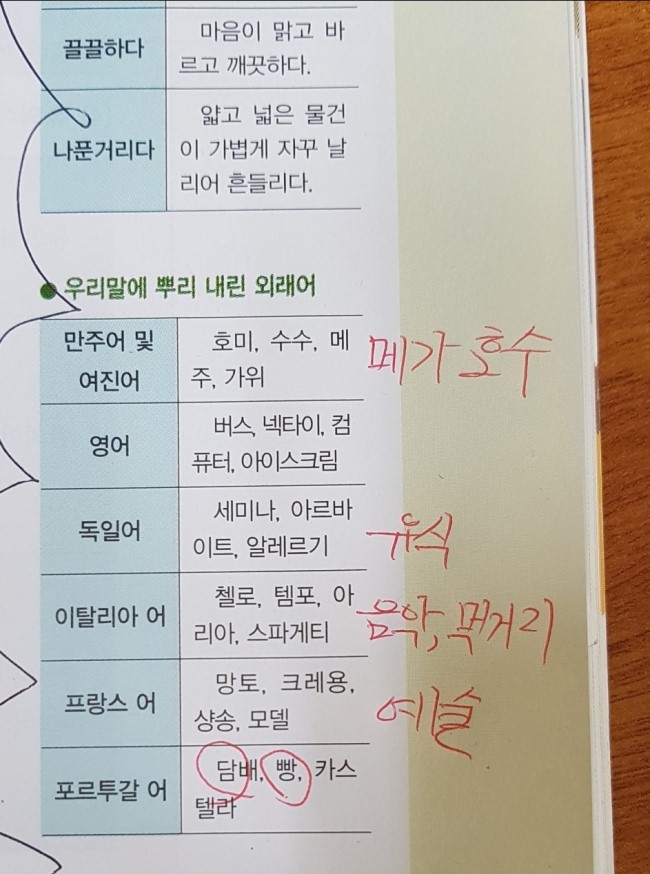 끌끌하다
마음이 맑고 바
르고 깨끗하다.
나푼거리다
얇고 넓은 물건
이 가볍게 자꾸 날
리어 흔들리다.
● 우리말에 뿌리 내린 외래어
만주어 및
여진어
호미, 수수, 메
주, 가위
메가호수
영어
버스, 넥타이, 컴
퓨터, 아이스크림
독일어
세미나, 아르바
이트, 알레르기
유식
이탈리아 어
첼로, 템포, 아
리아, 스파게티
음악, 먹거리
프랑스 어
망토, 크레용,
샹송, 모델
예술
포르투갈 어
담배, 빵, 카스
텔라